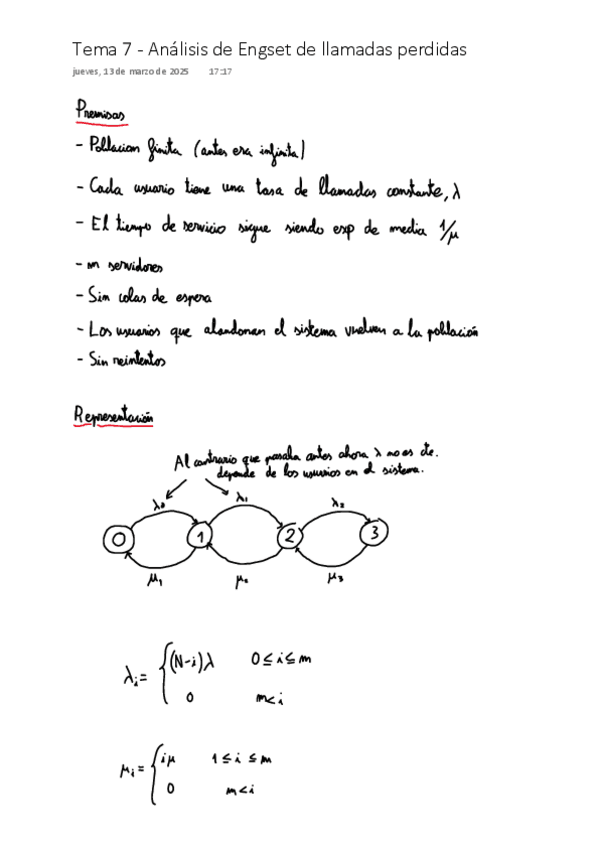 Tema 7 - Análisis de Engset de llamadas perdidas
jueves, 13 de marzo de 2025 17:17
Premisas
- Poblacion finita (antes era infinita)
- Cada usuario tiene una tasa de llamadas constante, λ
- El tiempo de servicio sigue siendo exp de media 1/μ
- m servidores
- Sin colas de espera
- Los usuarios que abandonan el sistema vuelven a la población
- Sin reintentos
Representación
Al contrario que pasaba antes ahora λ no es cte.
depende de los usuarios en el sistema.
λ₀ λ₁ λ₂
0 1 2 3
μ₁ μ₂ μ₃
λᵢ = { (N-i)λ 0 ≤ i ≤ m
0 m < i
μᵢ = { iμ 1 ≤ i ≤ m
0 m < i